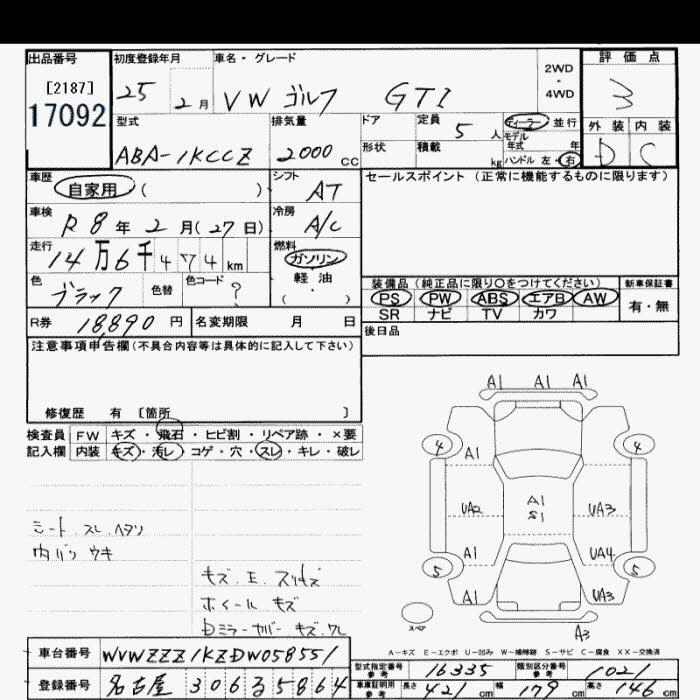 出品番号
[2187]
17092
初度登録年月
25年 2月
車名・グレード
VW ゴルフ GTI
2WD
・
4WD
評価点
3
外装 内装
D C
型式
ABA-1KCCZ
排気量
2000 cc
ドア
形状
定員
5人
積載
kg
ディーラー 並行
モデル
年式 年
ハンドル 左・右
車歴
自家用 ( )
シフト
AT
セールスポイント (正常に機能するものに限ります)
車検
R8年2月(27日)
冷房
A/C
走行
14万6千474km
燃料
ガソリン
軽油
( )
色
ブラック
色替
色コード
?
装備品 (純正品に限り○をつけてください)
PS PW ABS エアB AW
SR ナビ TV カワ
新車保証書
有・無
R券 18,890円
名変期限 月 日
後日品
注意事項申告欄(不具合内容等は具体的に記入して下さい)
修復歴 有 〔箇所 〕
検査員 FW キズ・飛石・ヒビ割・リペア跡・×要
記入欄 内装 キズ・汚レ・コゲ・穴・スレ・キレ・破レ
シート スレ ヘタリ
内バリ ウキ
キズ.E.スリキズ
ホイール キズ
Dミラーカバー キズ.ワレ
A1 A1 A1
4 4
A1
UA2 A1 UA3
S1
A1 UA4
5 5
A1 UA3
スペア
A3
A－キズ E－エクボ U－凹み W－補修跡 S－サビ C－腐食 XX－交換済
車台番号 WVWZZZ1KZDW058551
登録番号 名古屋 306 35864
型式指定番号
参考
16335
類別区分番号
参考
1021
車庫証明用
参考
長さ 421 cm 幅 179 cm 高さ 146 cm